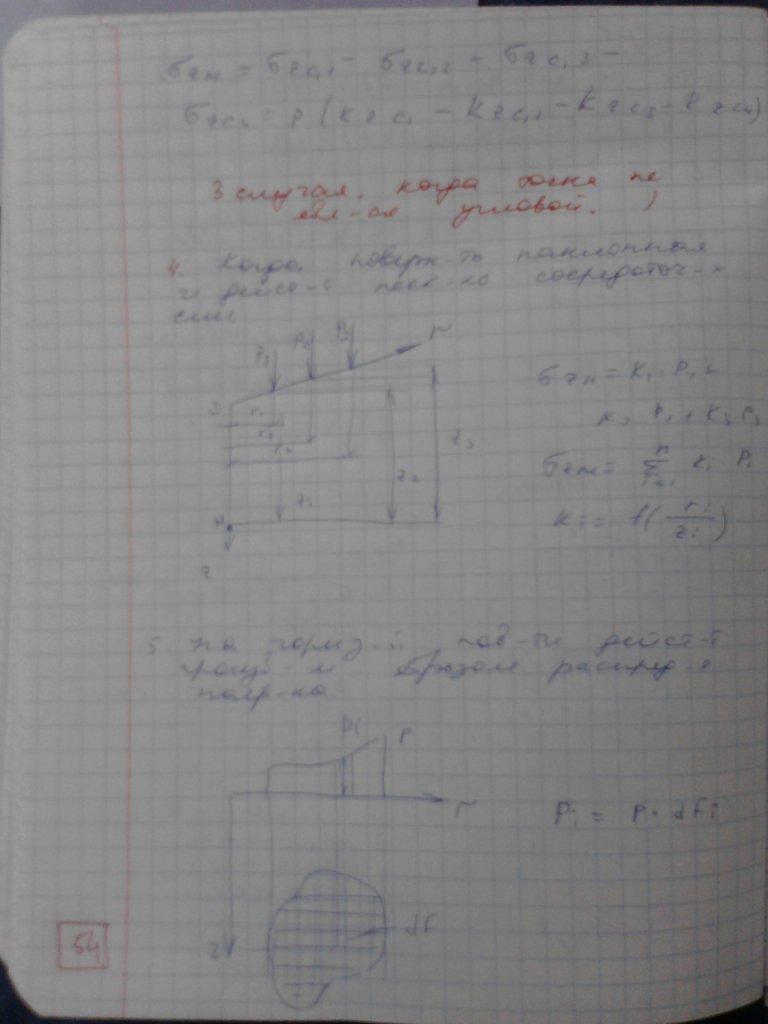 σzм = σzc,1 - σzc,2 - σzc,3 -
σzc4 = P (Kzc1 - Kzc,2 - Kzc3 - Kzc4)
3 случая, когда точка не
явл-ся угловой. )
4. Когда поверх-ть наклонная
и дейст-т неск-ко сосредоточ-х
сил
P1 P2 P3 r
O r1
r2
r3
z1 z2 z3
M
z
σzм = K1 · P1 +
K2 P2 + K3 P3
σzм = Σ Ki · Pi
n
i=1
Ki = f(ri/zi)
5 На гориз-й пов-ти дейст-т
образом распред-я
нагр-ка
Pi P
r
Pi = P · dFi
z
dF
54